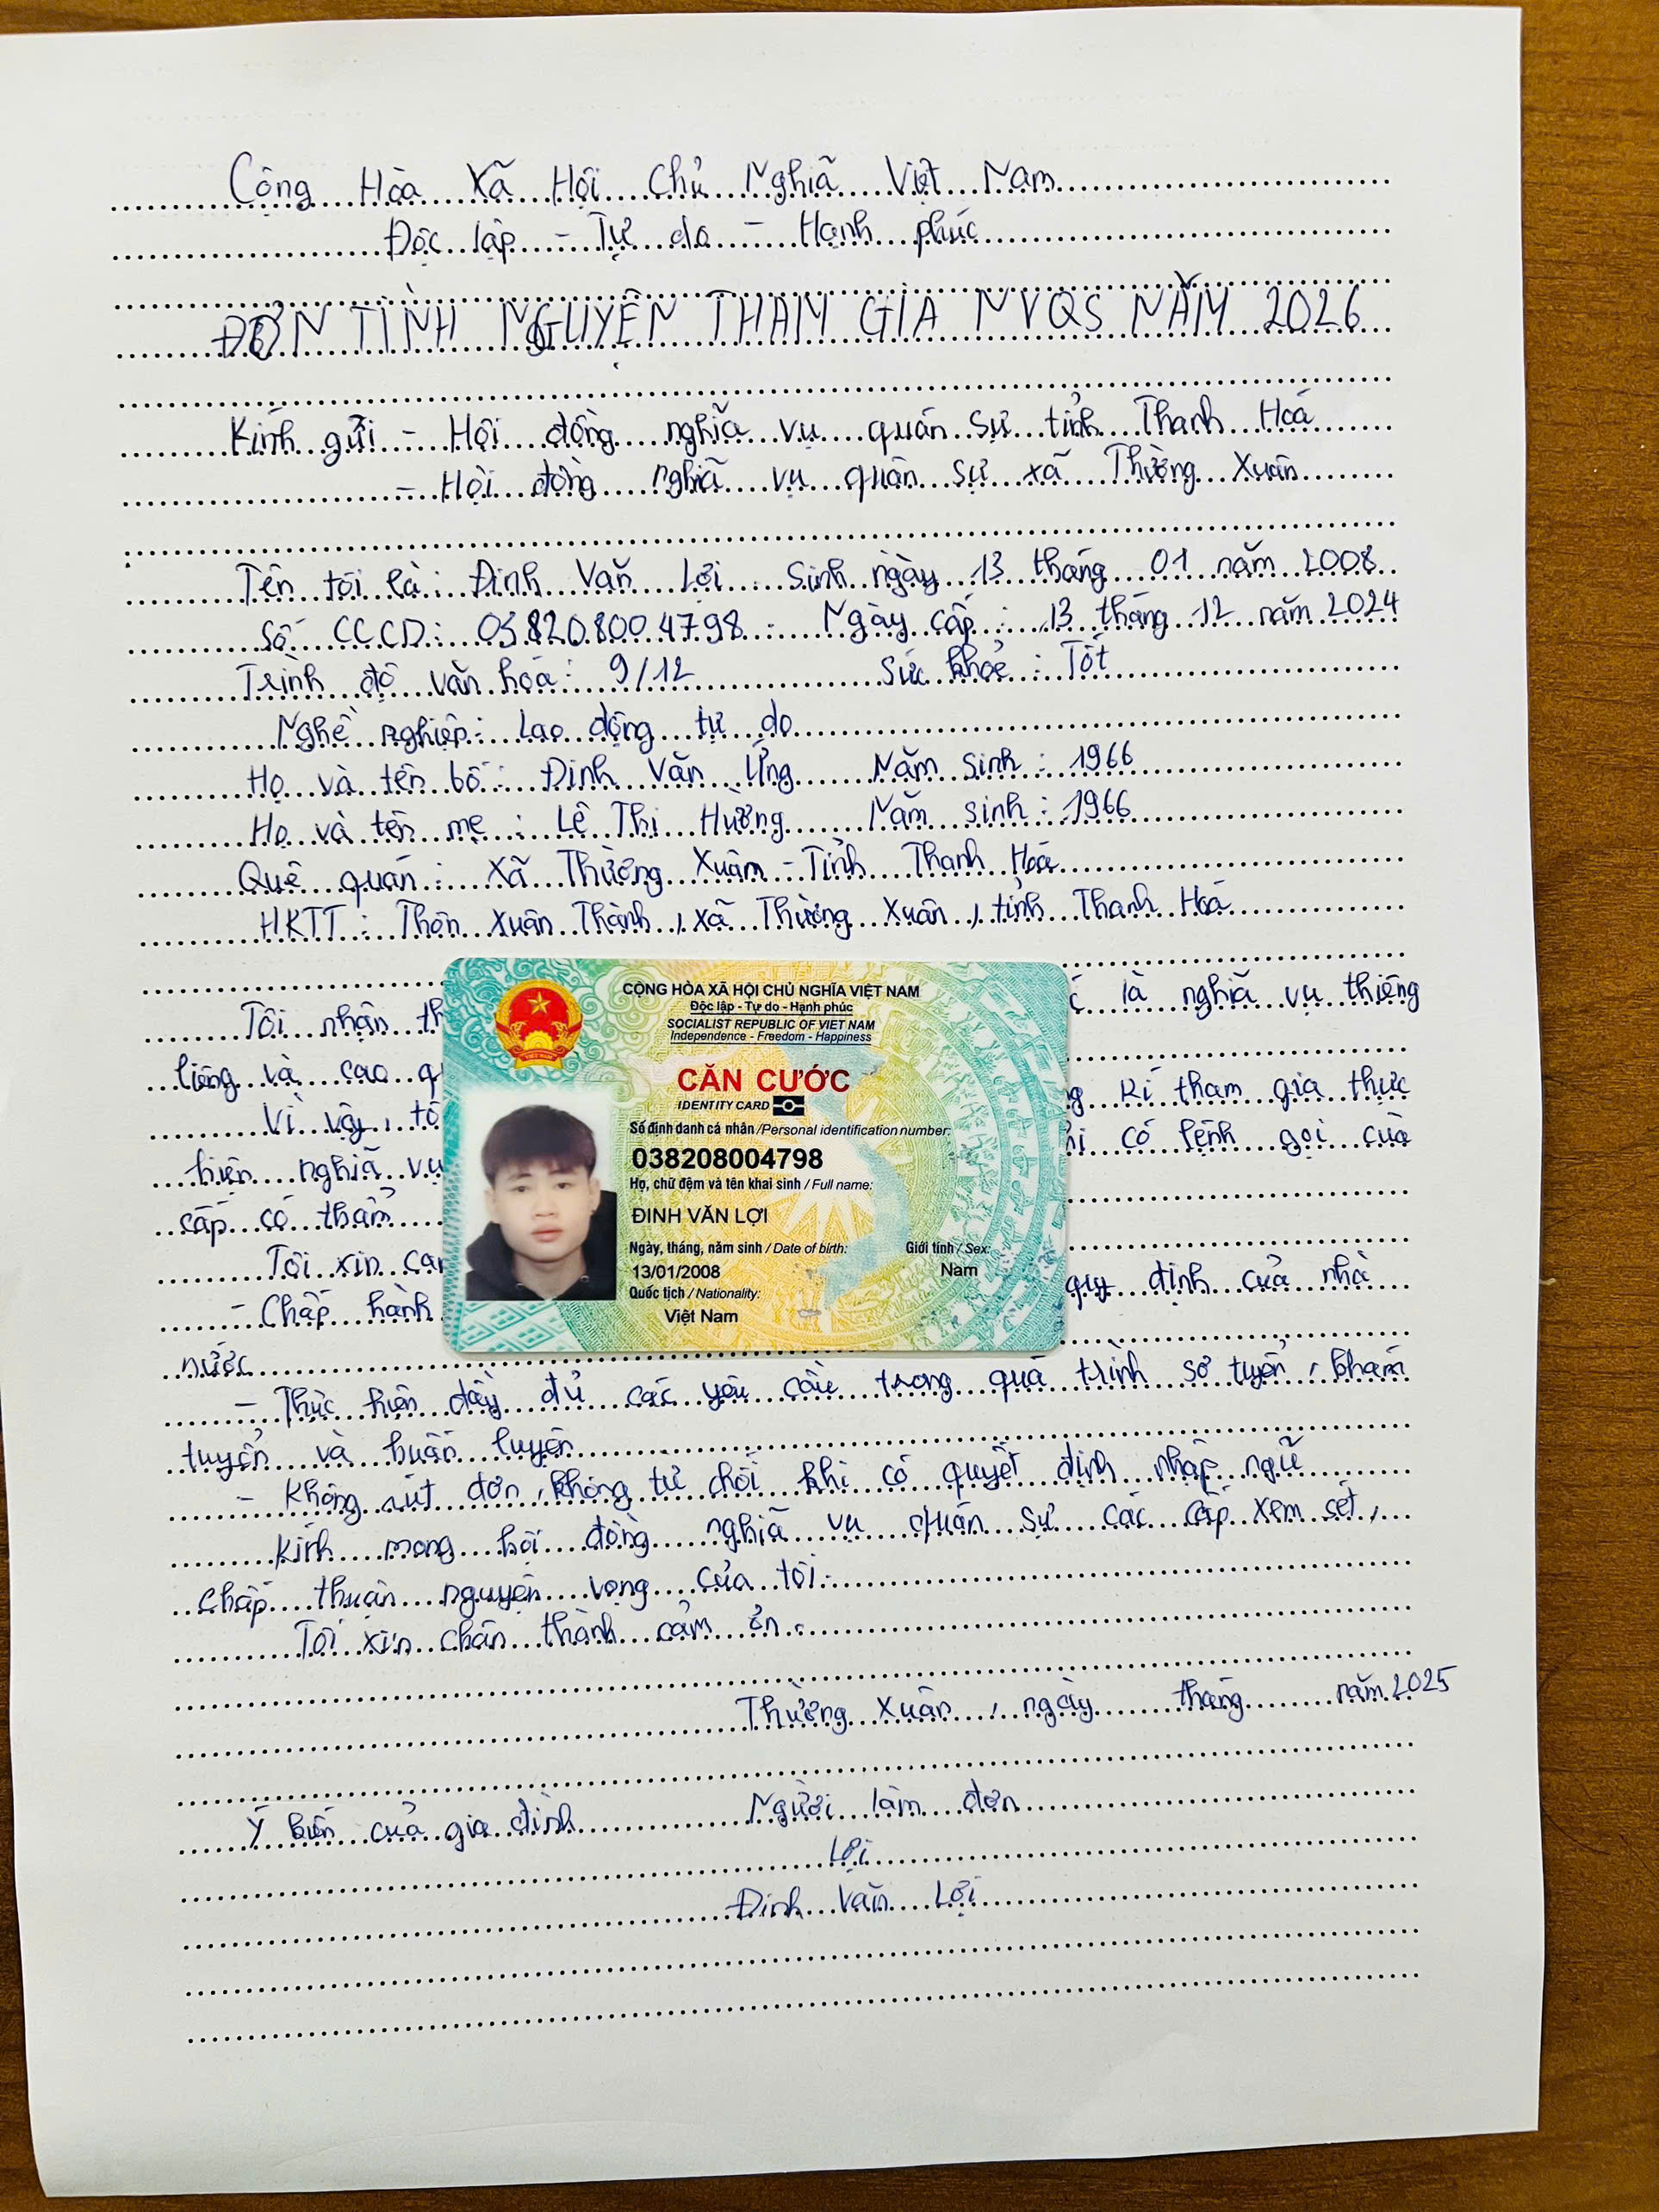 Cộng Hòa Xã Hội Chủ Nghĩa Việt Nam
Độc lập - Tự do - Hạnh phúc
ĐƠN TÌNH NGUYỆN THAM GIA NVQS NĂM 2026
Kính gửi - Hội đồng nghĩa vụ quân sự tỉnh Thanh Hoá
- Hội đồng nghĩa vụ quân sự xã Thường Xuân
Tên tôi là: Đinh Văn Lợi Sinh ngày 13 tháng 01 năm 2008
Số CCCD: 038208004798 Ngày cấp: 13 tháng 12 năm 2024
Trình độ văn hóa: 9/12 Sức khoẻ: Tốt
Nghề nghiệp: Lao động tự do
Họ và tên bố: Đinh Văn Ửng Năm sinh: 1966
Họ và tên mẹ: Lê Thị Hường Năm sinh: 1966
Quê quán: Xã Thường Xuân - Tỉnh Thanh Hoá
HKTT: Thôn Xuân Thành, xã Thường Xuân, tỉnh Thanh Hoá
Tôi nhận th là nghĩa vụ thiêng
liêng và cao q
Vì vậy, tô kí tham gia thực
hiện nghĩa vụ có lệnh gọi của
cấp có thẩm
Tôi xin ca
- Chấp hành quy định của nhà
nước
- Thực hiện đầy đủ các yêu cầu trong quá trình sơ tuyển, khám
tuyển và huấn luyện
- Không rút đơn, không từ chối khi có quyết định nhập ngũ
Kính mong hội đồng nghĩa vụ quân sự các cấp xem sét,
chấp thuận nguyện vọng của tôi.
Tôi xin chân thành cảm ơn.
Thường Xuân, ngày tháng năm 2025
Ý kiến của gia đình Người làm đơn
Lợi
Đinh Văn Lợi
CỘNG HÒA XÃ HỘI CHỦ NGHĨA VIỆT NAM
Độc lập - Tự do - Hạnh phúc
SOCIALIST REPUBLIC OF VIET NAM
Independence - Freedom - Happiness
CĂN CƯỚC
IDENTITY CARD
Số định danh cá nhân / Personal identification number:
038208004798
Họ, chữ đệm và tên khai sinh / Full name:
ĐINH VĂN LỢI
Ngày, tháng, năm sinh / Date of birth: Giới tính / Sex:
13/01/2008 Nam
Quốc tịch / Nationality:
Việt Nam